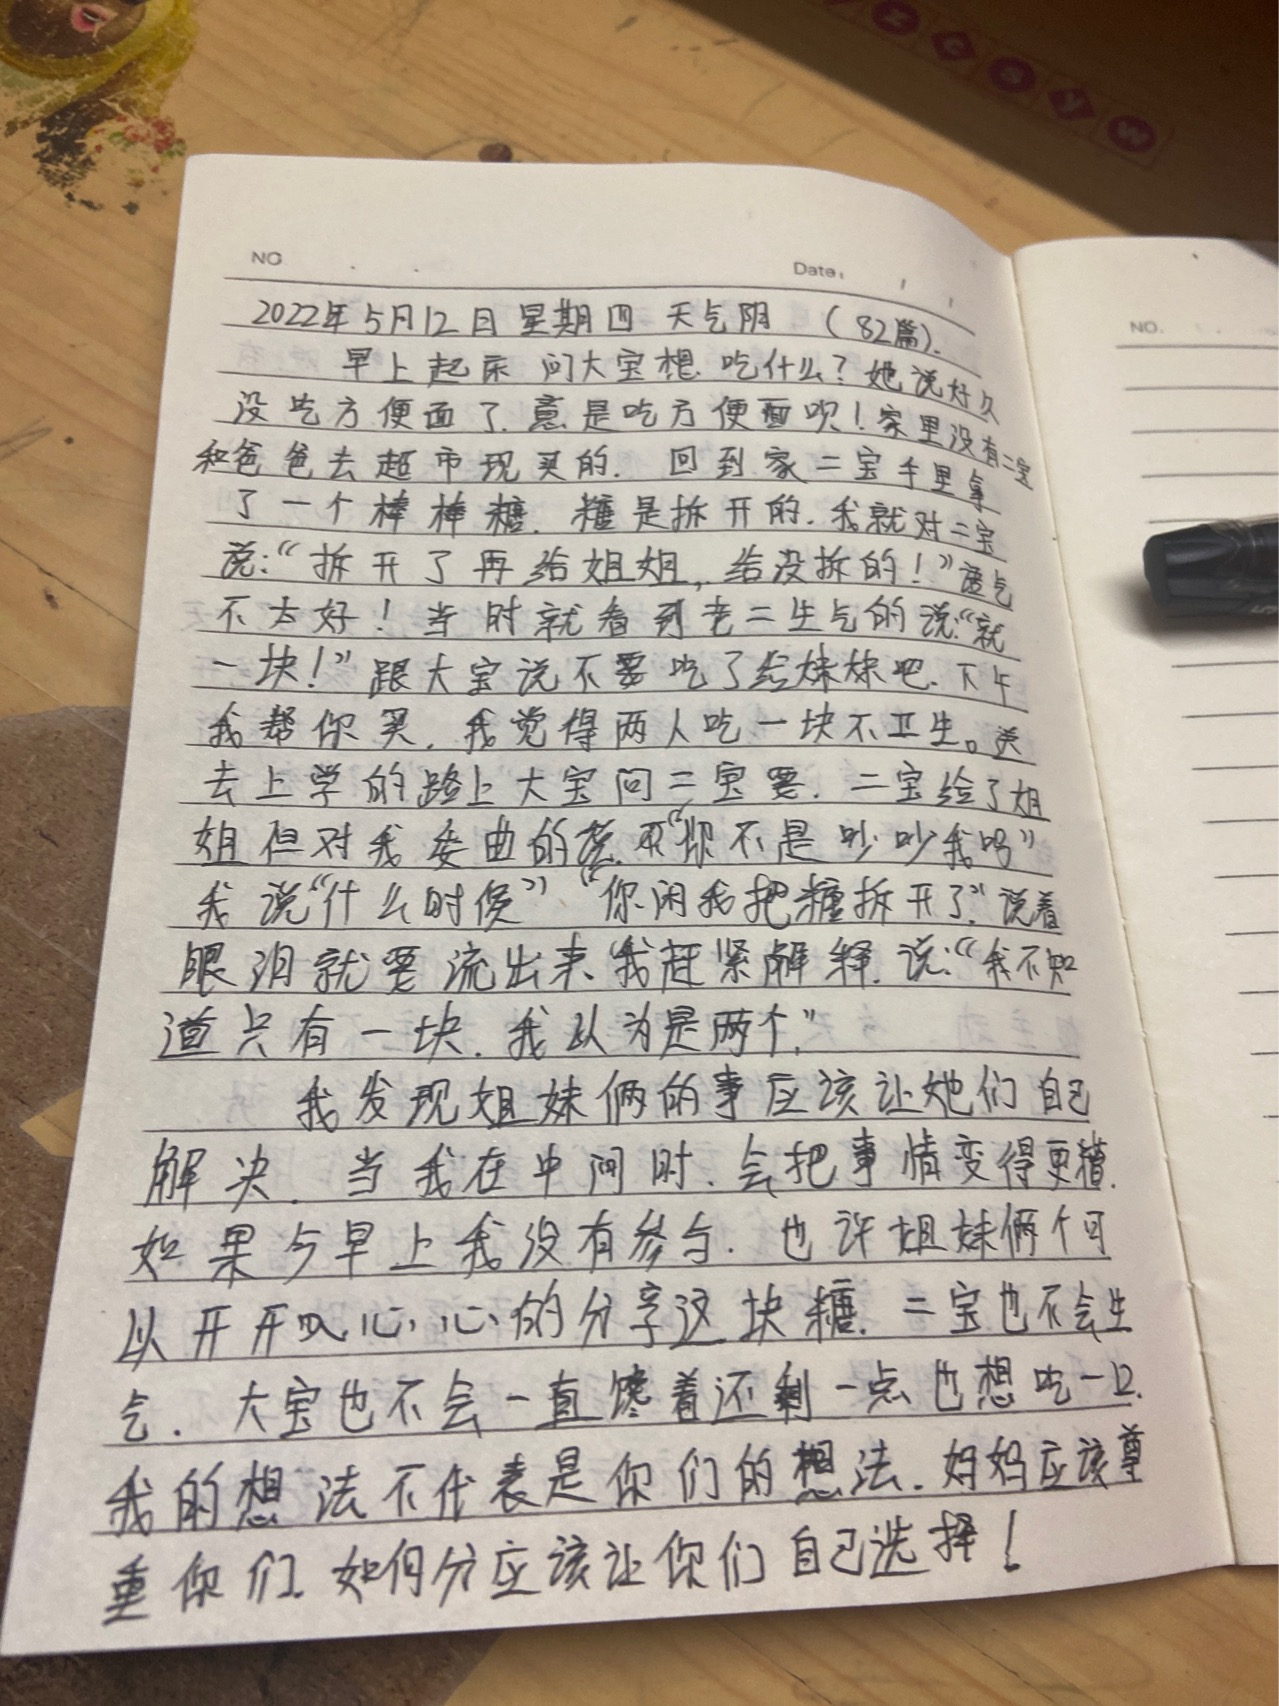 ZGSYW
NO
Date:
2022年5月12日 星期四 天气阴 (82篇).
早上起床 问大宝想吃什么?她说好久
没吃方便面了.意是吃方便面呗!家里没有二宝
和爸爸去超市现买的. 回到家二宝手里拿
了一个棒棒糖. 糖是拆开的.我就对二宝
说:“拆开了再给姐姐,给没拆的!”语气
不太好!当时就看到老二生气的说:“就
一块!”跟大宝说不要吃了给妹妹吧.下午
我帮你买.我觉得两人吃一块不卫生。送
去上学的路上大宝问二宝要.二宝给了姐
姐但对我委曲的说.“你不是吵吵我吗”
我说“什么时候”“你闲我把糖拆开了.”说着
眼泪就要流出来.我赶紧解释.说:“我不知
道只有一块.我以为是两个.”
我发现姐妹俩的事应该让她们自己
解决.当我在中间时.会把事情变得更糟.
如果今早上我没有参与.也许姐妹俩个可
以开开心心的分享这块糖.二宝也不会生
气.大宝也不会一直馋着还剩一点也想吃一口.
我的想法不代表是你们的想法.妈妈应该尊
重你们.如何分应该让你们自己选择!
NO.